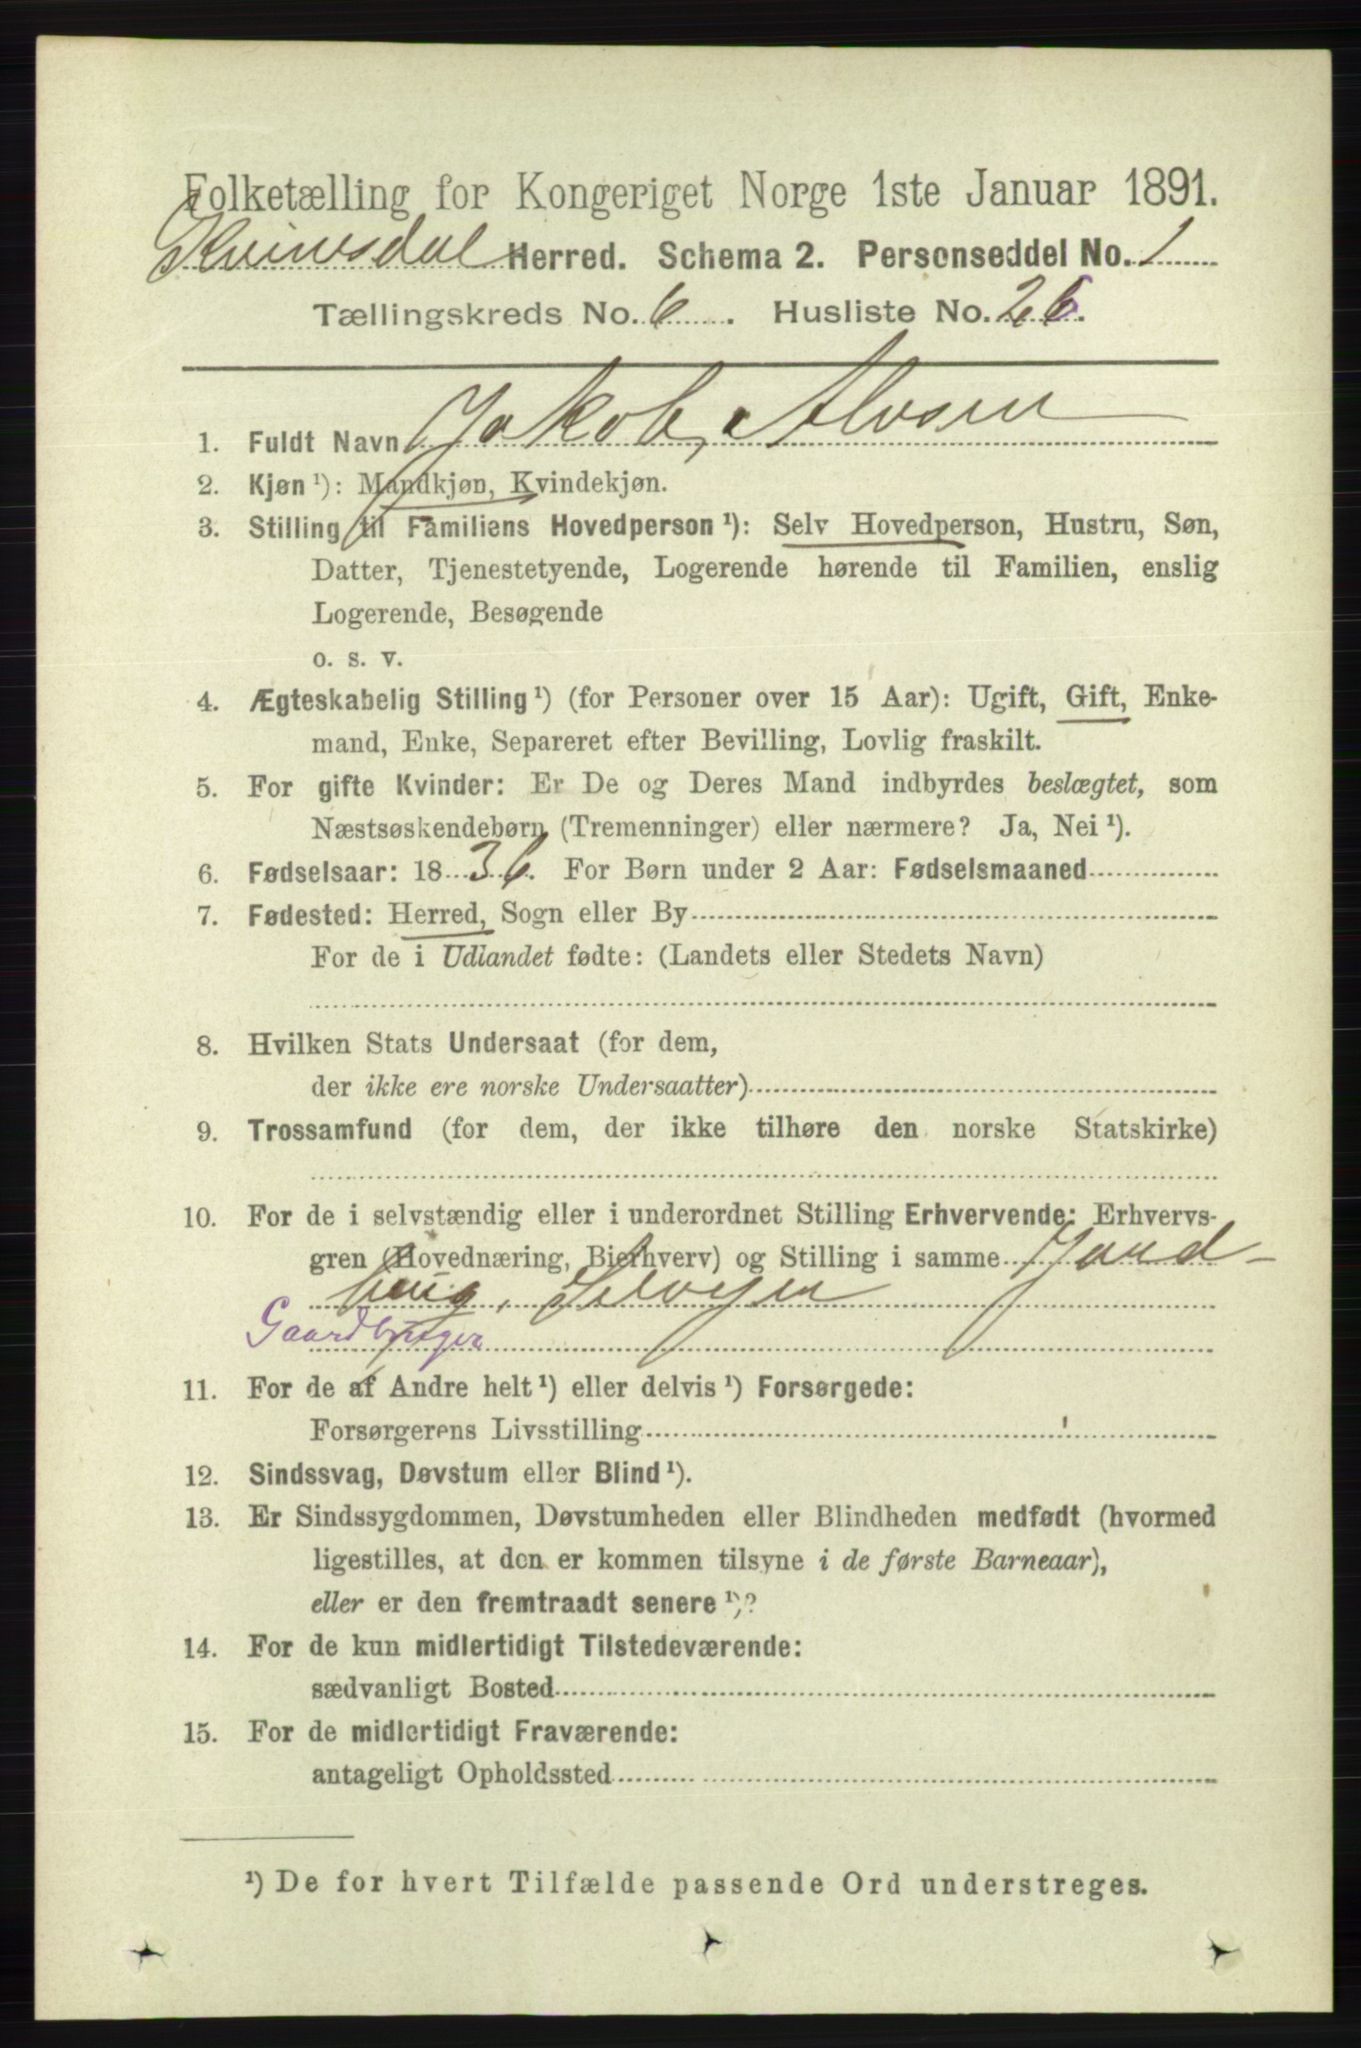 Folketælling for Kongeriget Norge 1ste Januar 1891.
Kvinesdal Herred. Schema 2. Personseddel No. 1
Tællingskreds No. 6. Husliste No. 26.
1. Fuldt Navn Jakob Alvsen
2. Kjøn ¹): Mandkjøn, Kvindekjøn.
3. Stilling til Familiens Hovedperson ¹): Selv Hovedperson, Hustru, Søn,
Datter, Tjenestetyende, Logerende hørende til Familien, enslig
Logerende, Besøgende
o. s. v.
4. Ægteskabelig Stilling ¹) (for Personer over 15 Aar): Ugift, Gift, Enke-
mand, Enke, Separeret efter Bevilling, Lovlig fraskilt.
5. For gifte Kvinder: Er De og Deres Mand indbyrdes beslægtet, som
Næstsøskendebørn (Tremenninger) eller nærmere? Ja, Nei ¹).
6. Fødselsaar: 1836. For Børn under 2 Aar: Fødselsmaaned
7. Fødested: Herred, Sogn eller By
For de i Udlandet fødte: (Landets eller Stedets Navn)
8. Hvilken Stats Undersaat (for dem,
der ikke ere norske Undersaatter)
9. Trossamfund (for dem, der ikke tilhøre den norske Statskirke)
10. For de i selvstændig eller i underordnet Stilling Erhvervende: Erhvervs-
gren (Hovednæring, Bierhverv) og Stilling i samme Jord-
brug, Selveger
Gaardbruger
11. For de af Andre helt ¹) eller delvis ¹) Forsørgede:
Forsørgerens Livsstilling
12. Sindssvag, Døvstum eller Blind ¹).
13. Er Sindssygdommen, Døvstumheden eller Blindheden medfødt (hvormed
ligestilles, at den er kommen tilsyne i de første Barneaar),
eller er den fremtraadt senere ¹)?
14. For de kun midlertidigt Tilstedeværende:
sædvanligt Bosted
15. For de midlertidigt Fraværende:
antageligt Opholdssted
¹) De for hvert Tilfælde passende Ord understreges.